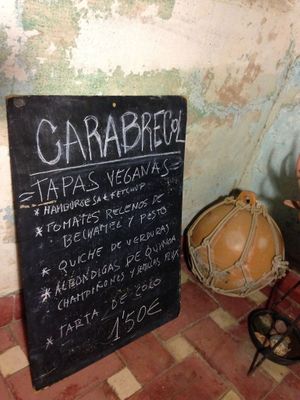 CARABRECOL
TAPAS VEGANAS
* HAMBURGESA & KETCHUP
* TOMATES RELENOS DE
BECHAMEL Y PESTO
* QUICHE DE VERDURAS
* ALBONDIGAS DE QUINOA
CHAMPIÑONES Y
* TARTA DE COCO
1'50€